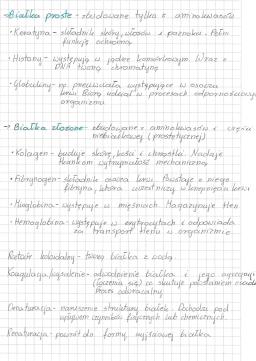 →Białka proste - zbudowane tylko z aminokwasów
• Keratyna - składnik skóry, włosów i paznokci. Pełni
funkcję ochronną
• Histony - występują w jądrze komórkowym. Wraz z
DNA tworzą chromatynę
• Globuliny - np. przeciwciała występujące w osoczu
krwi. Biorą udział w procesach odpornościowych
organizmu
→ Białka złożone - zbudowane z aminokwasów i części
niebiałkowej (prostetycznej)
• Kolagen - buduje skórę, kości i chrząstki. Nadaje
tkankom wytrzymałość mechaniczną
• Fibrynogen - składnik osocza krwi. Powstaje z niego
fibryna, która uczestniczy w krzepnięciu krwi
• Mioglobina - występuje w mięśniach. Magazynuje tlen
• Hemoglobina - występuje w erytrocytach i odpowiada
za transport tlenu w organizmie
Roztwór koloidalny - tworzą białka z wodą
Koagulacja/wysalanie - odwodnienie białka i jego
(łączenia się) co skutkuje powstaniem osadu
Proces odwracalny
Denaturacja - naruszenie struktury białek. Dochodzi pod
wpływem czynników fizycznych lub chemicznych.
Renaturacja - powrót do formy wyjściowej białka